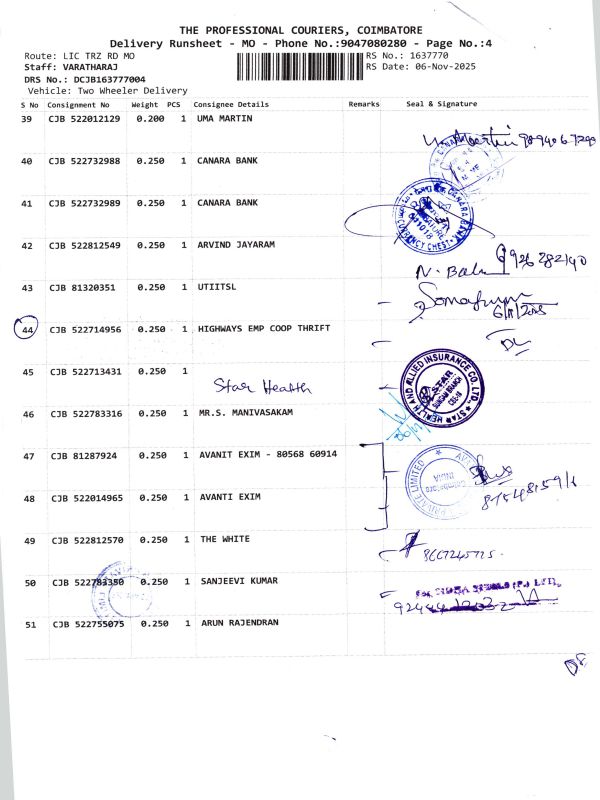 THE PROFESSIONAL COURIERS, COIMBATORE
Delivery Runsheet - MO - Phone No.:9047080280 - Page No.:4
Route: LIC TRZ RD MO RS No.: 1637770
Staff: VARATHARAJ RS Date: 06-Nov-2025
DRS No.: DCJB163777004
Vehicle: Two Wheeler Delivery
S No Consignment No Weight PCS Consignee Details Remarks Seal & Signature
39 CJB 522012129 0.200 1 UMA MARTIN
40 CJB 522732988 0.250 1 CANARA BANK
41 CJB 522732989 0.250 1 CANARA BANK
CANARA BANK
CURRENCY CHEST
42 CJB 522812549 0.250 1 ARVIND JAYARAM
43 CJB 81320351 0.250 1 UTIITSL
6/11/2025
44 CJB 522714956 0.250 1 HIGHWAYS EMP COOP THRIFT
DL
45 CJB 522713431 0.250 1
Star Health
STAR HEALTH AND ALLIED INSURANCE CO. LTD.
46 CJB 522783316 0.250 1 MR.S. MANIVASAKAM
47 CJB 81287924 0.250 1 AVANIT EXIM - 80568 60914
PRIVATE LIMITED
Coimbatore
INDIA
48 CJB 522014965 0.250 1 AVANTI EXIM
49 CJB 522812570 0.250 1 THE WHITE
50 CJB 522783380 0.250 1 SANJEEVI KUMAR
51 CJB 522755075 0.250 1 ARUN RAJENDRAN